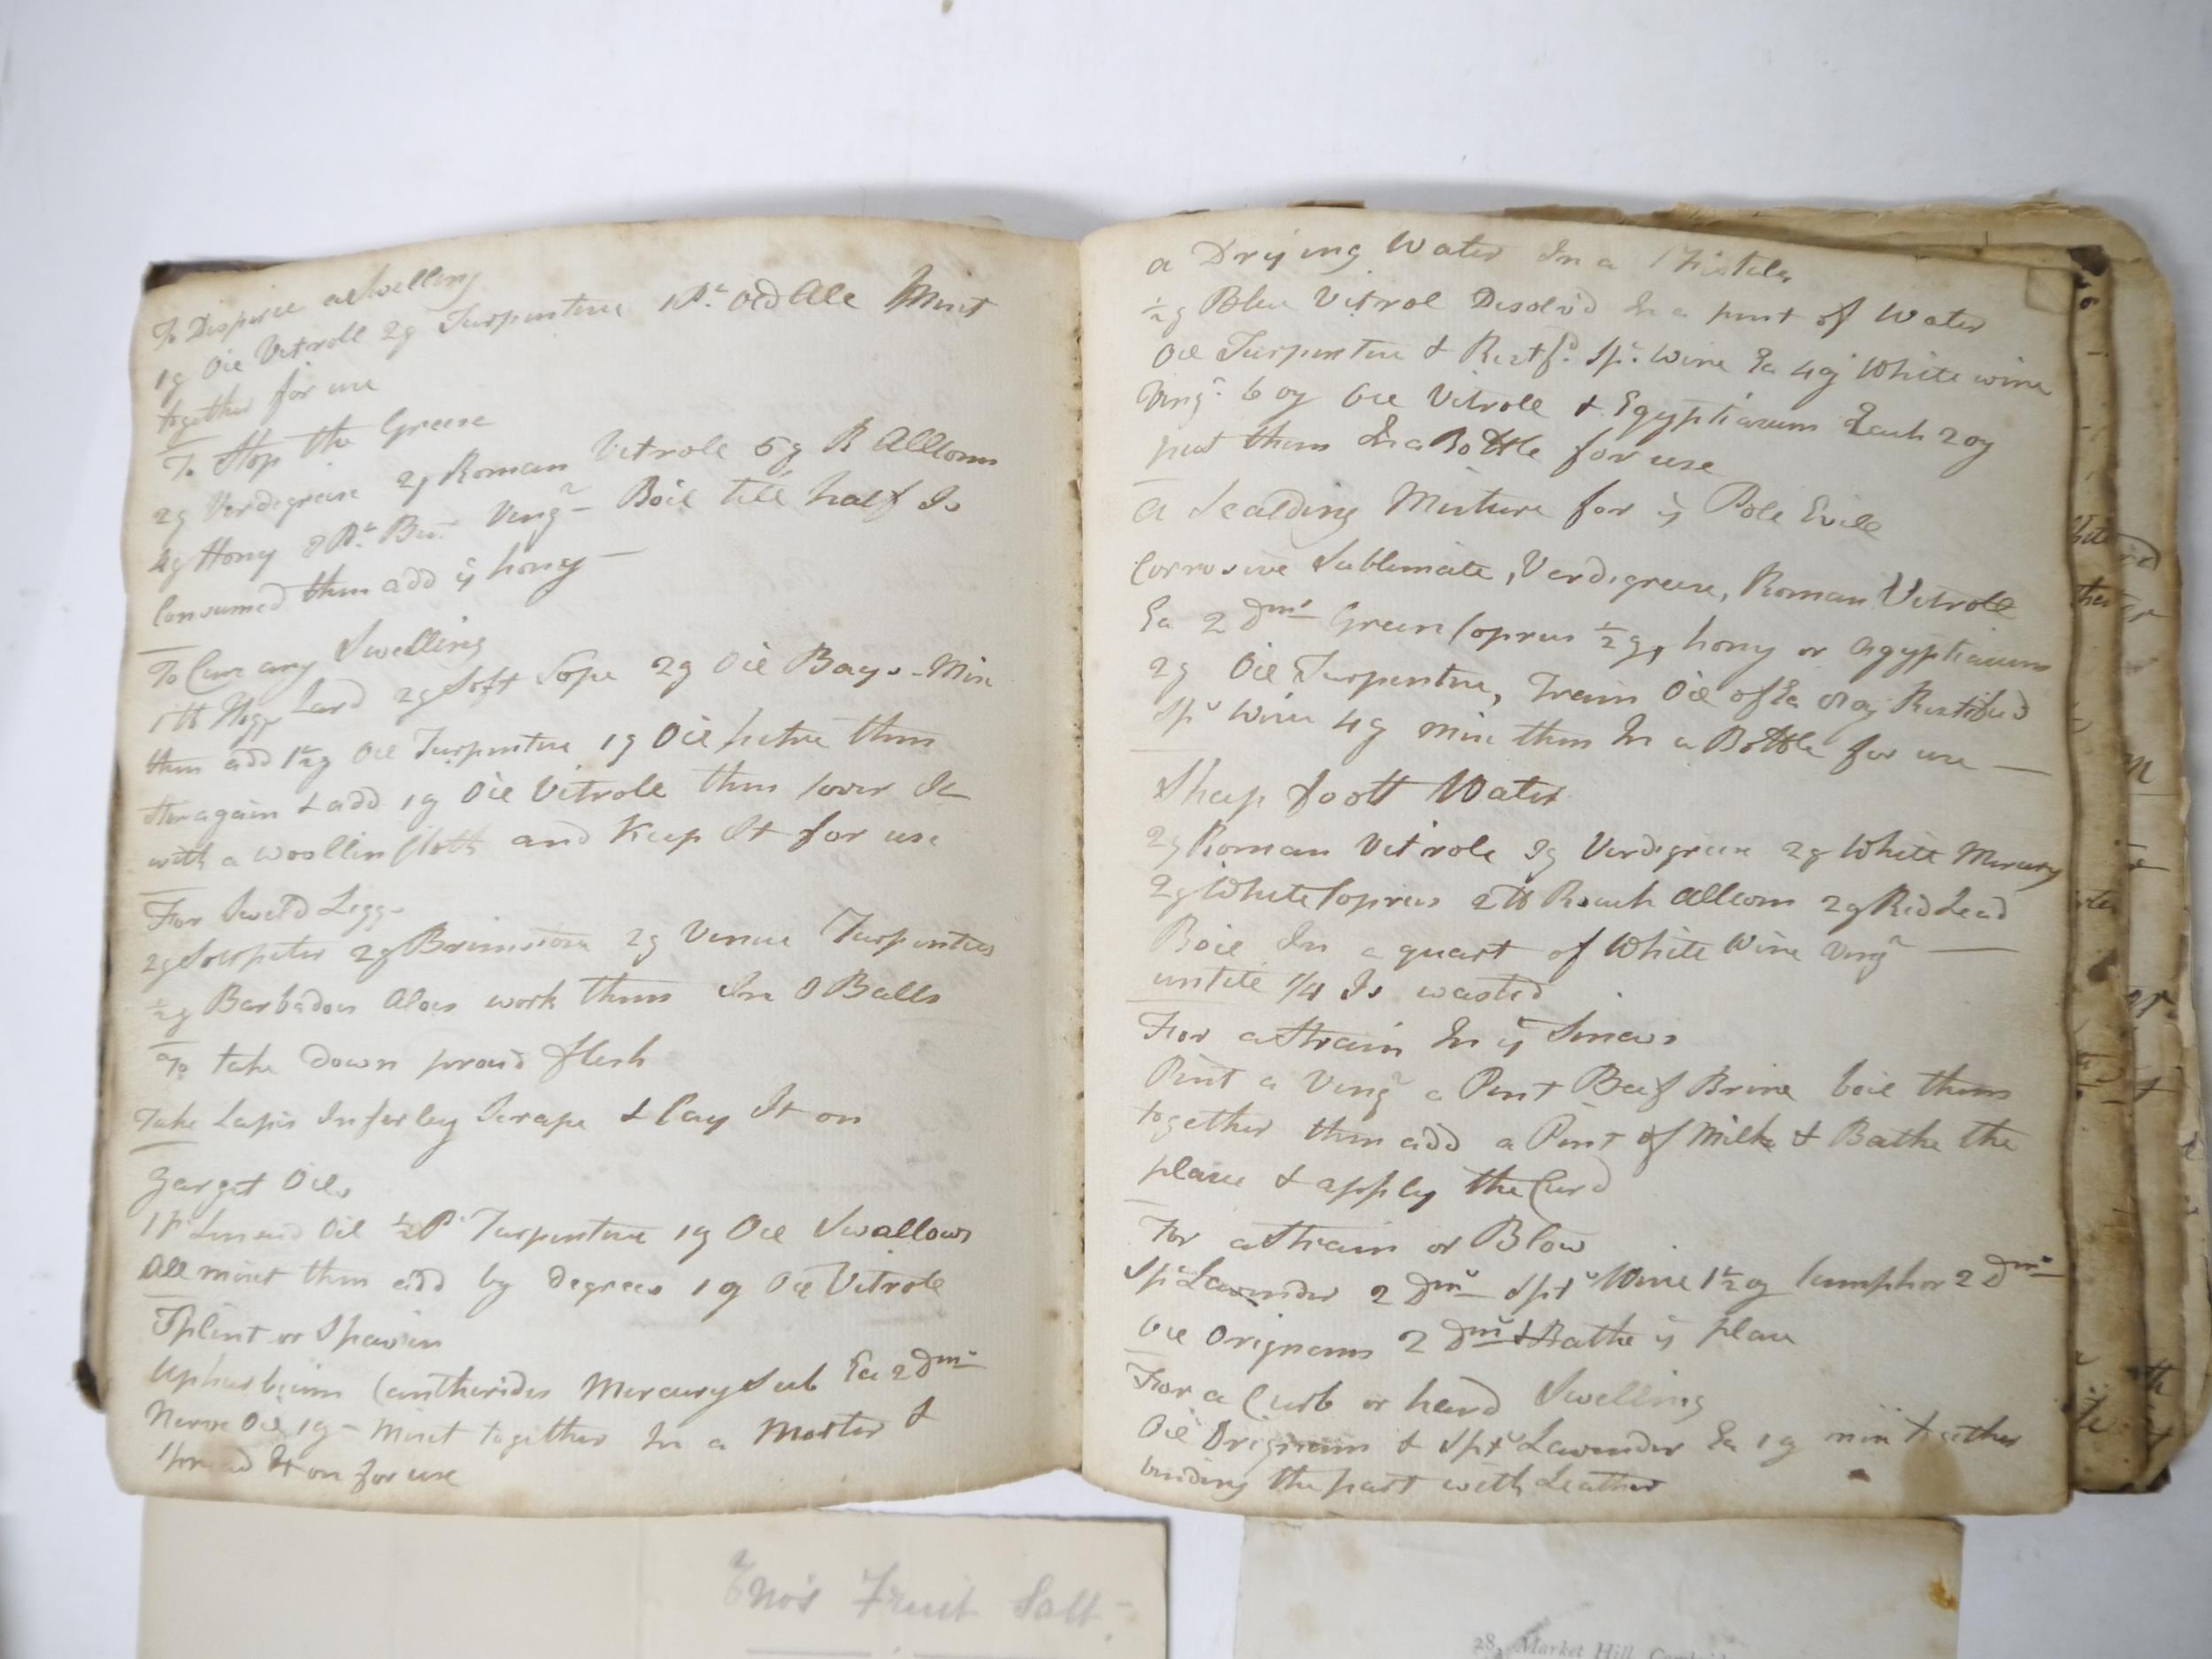 To Disperce a Swelling
1 oz Oil Vitroll 2 oz Turpentine 1 Pt Old Ale Mixt
together for use
To Stop the Greese
2 oz Verdigrease 2 oz Roman Vitrole 5 oz R Alloum
4 oz Hony Pt Vingr Boil till half Is
Consumed then add ye hony
To Cure any Swelling
1 lb Hogs Lard 2 oz Soft Sope 2 oz Oil Bays Mix
them add 1½ oz Oil Turpentine 1 oz Oil petre then
Stir again & add 1 oz Oil Vitrole then Cover It
with a woollin Cloth and Keep It for use
For Sweld Leggs
2 oz Solopeter 2 oz Brimstone 2 oz Venice Turpentine
½ oz Barbadous Aloes work them In 8 Balls
To take down proud flesh
Take Lapis Inferley Scrape & Lay It on
Garget Oils
1 Pt Linseed Oil ½ Pt Turpentine 1 oz Oil Swallows
All mixt then add by degrees 1 oz Oil Vitrole
Splint or Spavin
Uphorbium Cantherides Mercury Sub Ea 2 Dms
Nerve Oil 1 oz mixt together In a Morter &
Spread It on for use
a Drying Water In a Fistela
½ oz Blue Vitrol Desolvd In a pint of Water
Oil Turpentine & Rectfd Spt Wine Ea 4 oz White wine
Vingr 6 oz Oil Vitroll & Egyptiacum Each 2 oz
put them In a Bottle for use
a Scalding Mixture for ye Pole Evill
Corrosive Sublimate, Verdigrease, Roman Vitroll
Ea 2 Dms Green Coprus ½ oz, hony or agyptiacum
2 oz Oil Turpentine, Train Oil of Ea 8 oz Rectified
Spt Wine 4 oz mix them In a Bottle for use
Sheep foott Water
2 oz Roman Vitrole 3 oz Verdigrease 2 oz White Mercury
2 oz White Coprus 2 lb Roach Alloum 2 oz Red Lead
Boil In a quart of White Wine Vingr
untill 1/4 Is wasted
For a Strain In ye Sinews
Pint a Vingr a Pint Beef Brine boil them
together then add a Pint of Milk & Bathe the
place & apply the Curd
For a Strain or Blow
Spt Lavender 2 Dms Spt Wine 1½ oz Camphor 2 Dms
Oil Origanum 2 Dms & Bathe ye place
For a Curb or hard Swelling
Oil Origanum & Spt Lavender Ea 1 oz mix together
binding the part with Leather
Eno's Fruit Salt
28, Market Hill,